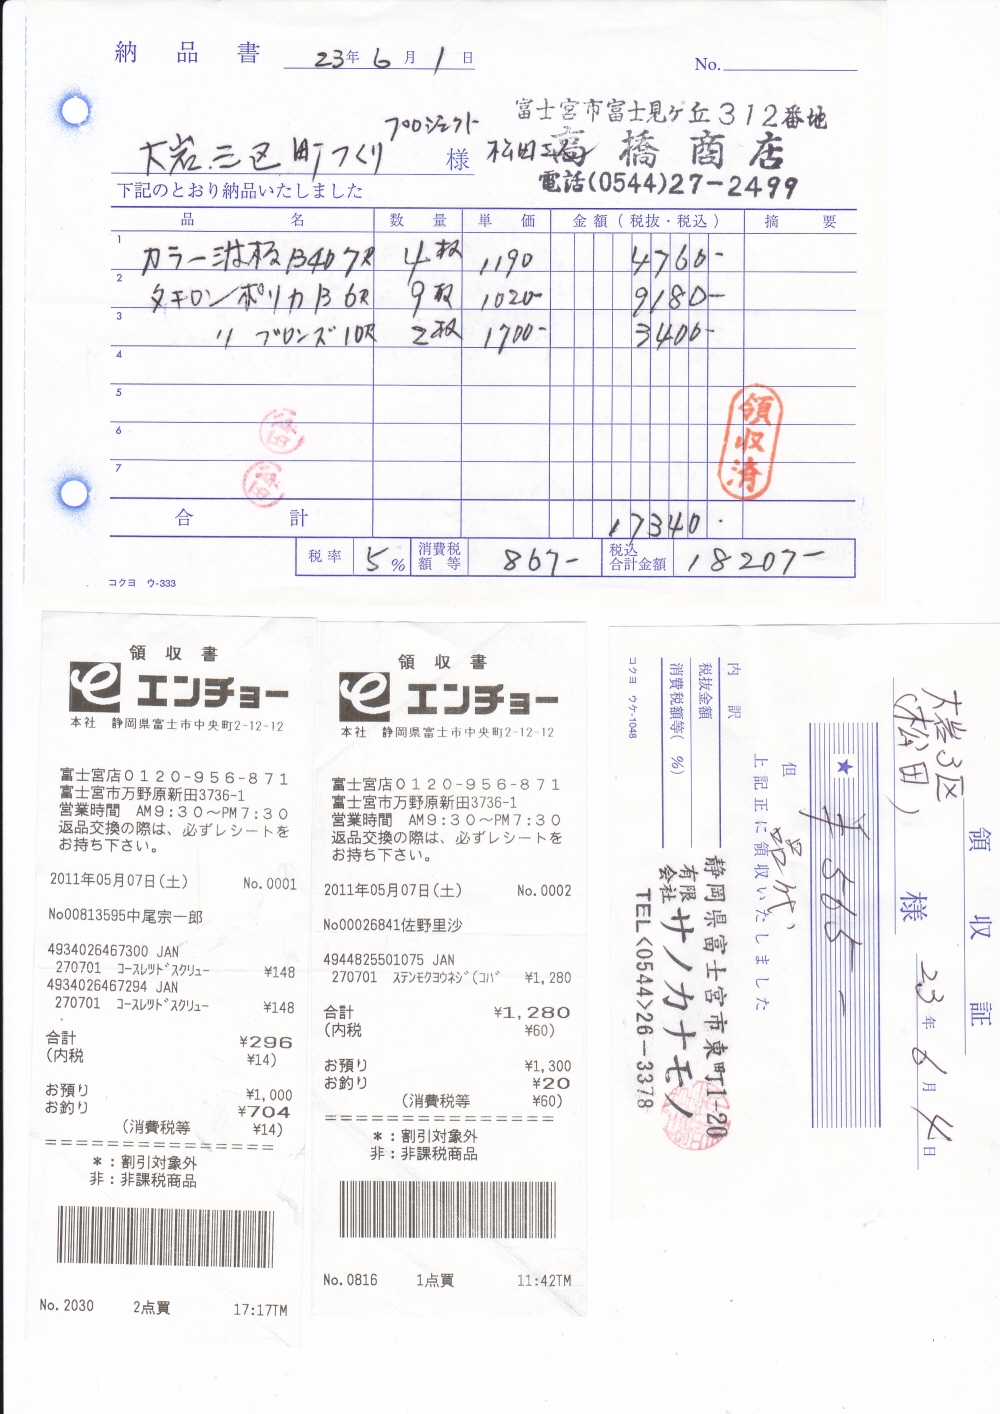 納品書
23年6月1日
No.
富士宮市富士見ケ丘312番地
大岩三区町づくり
プロジェクト
様
松田工
高橋商店
電話(0544)27-2499
下記のとおり納品いたしました
品名 数量 単価 金額(税抜・税込) 摘要
1 カラー波板B407尺 4枚 1190 4760-
2 タキロンポリカB6尺 9枚 1020- 9180-
3 〃 ブロンズ10尺 2枚 1700- 3400-
4
5
6
7
領収済
合計 17340-
税率 5% 消費税額等 867- 税込合計金額 18207-
コクヨ ウ-333
領収書
エンチョー
本社 静岡県富士市中央町2-12-12
富士宮店0120-956-871
富士宮市万野原新田3736-1
営業時間 AM9:30~PM7:30
返品交換の際は、必ずレシートを
お持ち下さい。
2011年05月07日(土) No.0001
No00813595中尾宗一郎
4934026467300 JAN
270701 コースレツドスクリュー ¥148
4934026467294 JAN
270701 コースレツドスクリュー ¥148
合計 ¥296
(内税 ¥14)
お預り ¥1,000
お釣り ¥704
(消費税等 ¥14)
====================
*:割引対象外
非:非課税商品
No.2030 2点買 17:17TM
領収書
エンチョー
本社 静岡県富士市中央町2-12-12
富士宮店0120-956-871
富士宮市万野原新田3736-1
営業時間 AM9:30~PM7:30
返品交換の際は、必ずレシートを
お持ち下さい。
2011年05月07日(土) No.0002
No00026841佐野里沙
4944825501075 JAN
270701 ステンモクヨウネジ(コバ ¥1,280
合計 ¥1,280
(内税 ¥60)
お預り ¥1,300
お釣り ¥20
(消費税等 ¥60)
====================
*:割引対象外
非:非課税商品
No.0816 1点買 11:42TM
領収証
23年6月4日
大岩3区
(松田)
様
★
¥565-
但 品代
上記正に領収いたしました
内訳
税抜金額
消費税額等( %)
コクヨ ウケ-1048
静岡県富士宮市東町1-20
有限会社 サノカナモノ
TEL<0544>26-3378